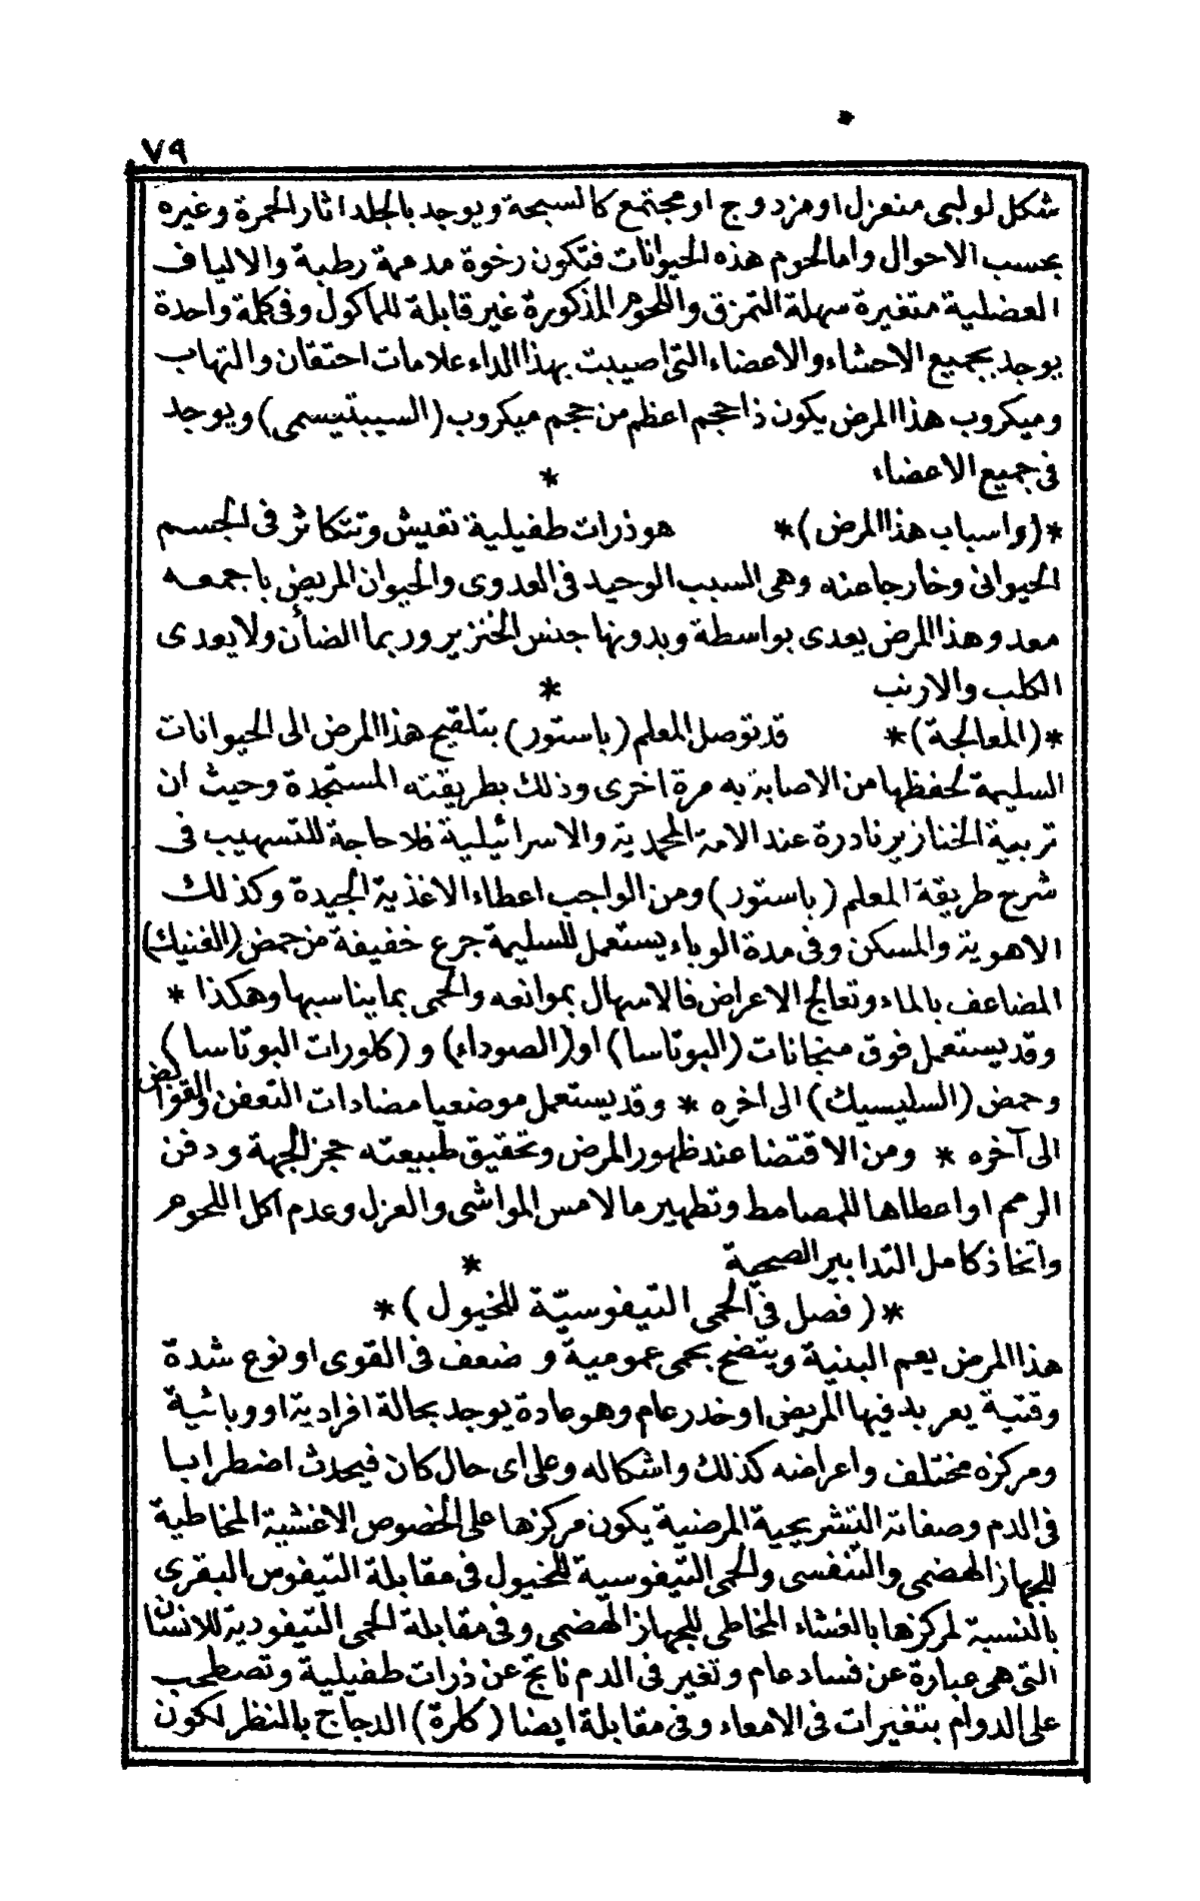 ٧٩
شكل لولبى منعزل او مزدوج او مجتمع كالسبحة ويوجد بالجلد اثار الحمرة وغيره
بحسب الاحوال واما لحوم هذه الحيوانات فتكون رخوة مدممة رطبة والالياف
العضلية متغيرة سهلة التمزق واللحوم المذكورة غير قابلة للمأكول وفى كلمة واحدة
يوجد بجميع الاحشاء والاعضاء التى اصيبت بهذا الداء علامات احتقان والتهاب
وميكروب هذا المرض يكون ذا حجم اعظم من حجم ميكروب (السيبتيسمى) ويوجد
فى جميع الاعضاء *
*(واسباب هذا المرض)* هو ذرات طفيلية تعيش وتتكاثر فى الجسم
الحيوانى وخارجا عنه وهى السبب الوحيد فى العدوى والحيوان المريض باجمعه
معد وهذا المرض يعدى بواسطة وبدونها جنس الخنزير وربما الضأن ولا يعدى
الكلب والارنب *
*(المعالجة)* قد توصل المعلم (باستور) بتلقيح هذا المرض الى الحيوانات
السليمة لحفظها من الاصابة به مرة اخرى وذلك بطريقته المستجدة وحيث ان
تربية الخنازير نادرة عند الامة المحمدية والاسرائيلية فلا حاجة للتسهيب فى
شرح طريقة المعلم (باستور) ومن الواجب اعطاء الاغذية الجيدة وكذلك
الاهوية والمسكن وفى مدة الوباء يستعمل للسليمة جرع خفيفة من حمض (الفنيك)
المضاعف بالماء وتعالج الاعراض فالاسهال بموانعه والحمى بما يناسبها وهكذا *
وقد يستعمل فوق منجانات (البوتاسا) او (الصوداء) و (كلورات البوتاسا)
وحمض (السليسيك) الى اخره * وقد يستعمل موضعيا مضادات التعفن والقوابض
الى آخره * ومن الاقتضا عند ظهور المرض وتحقيق طبيعته حجز الجهة ودفن
الرمم او اعطاها للمصامط وتطهير ما لامس المواشى والعزل وعدم اكل اللحوم
واتخاذ كامل التدابير الصحية *
*( فصل فى الحمى التيفوسيّة للخيول )*
هذا المرض يعم البنية ويتضح بحمى عمومية و ضعف فى القوى او نوع شدة
وقتية يعربد فيها المريض او خدر عام وهو عادة يوجد بحالة افرادية او وبائية
ومركزه مختلف واعراضه كذلك واشكاله وعلى اى حال كان فيحدث اضطرابا
فى الدم وصفاته التشريحية المرضية يكون مركزها على الخصوص الاغشية المخاطية
للجهاز الهضمى والتنفسى والحمى التيفوسية للخيول فى مقابلة التيفوس البقرى
بالنسبة لمركزها بالغشاء المخاطى للجهاز الهضمى وفى مقابلة الحمى التيفودية للانسان
التى هى عبارة عن فساد عام وتغير فى الدم ناتج عن ذرات طفيلية وتصطحب
على الدوام بتغيرات فى الامعاء وفى مقابلة ايضا (كلرة) الدجاج بالنظر لكون